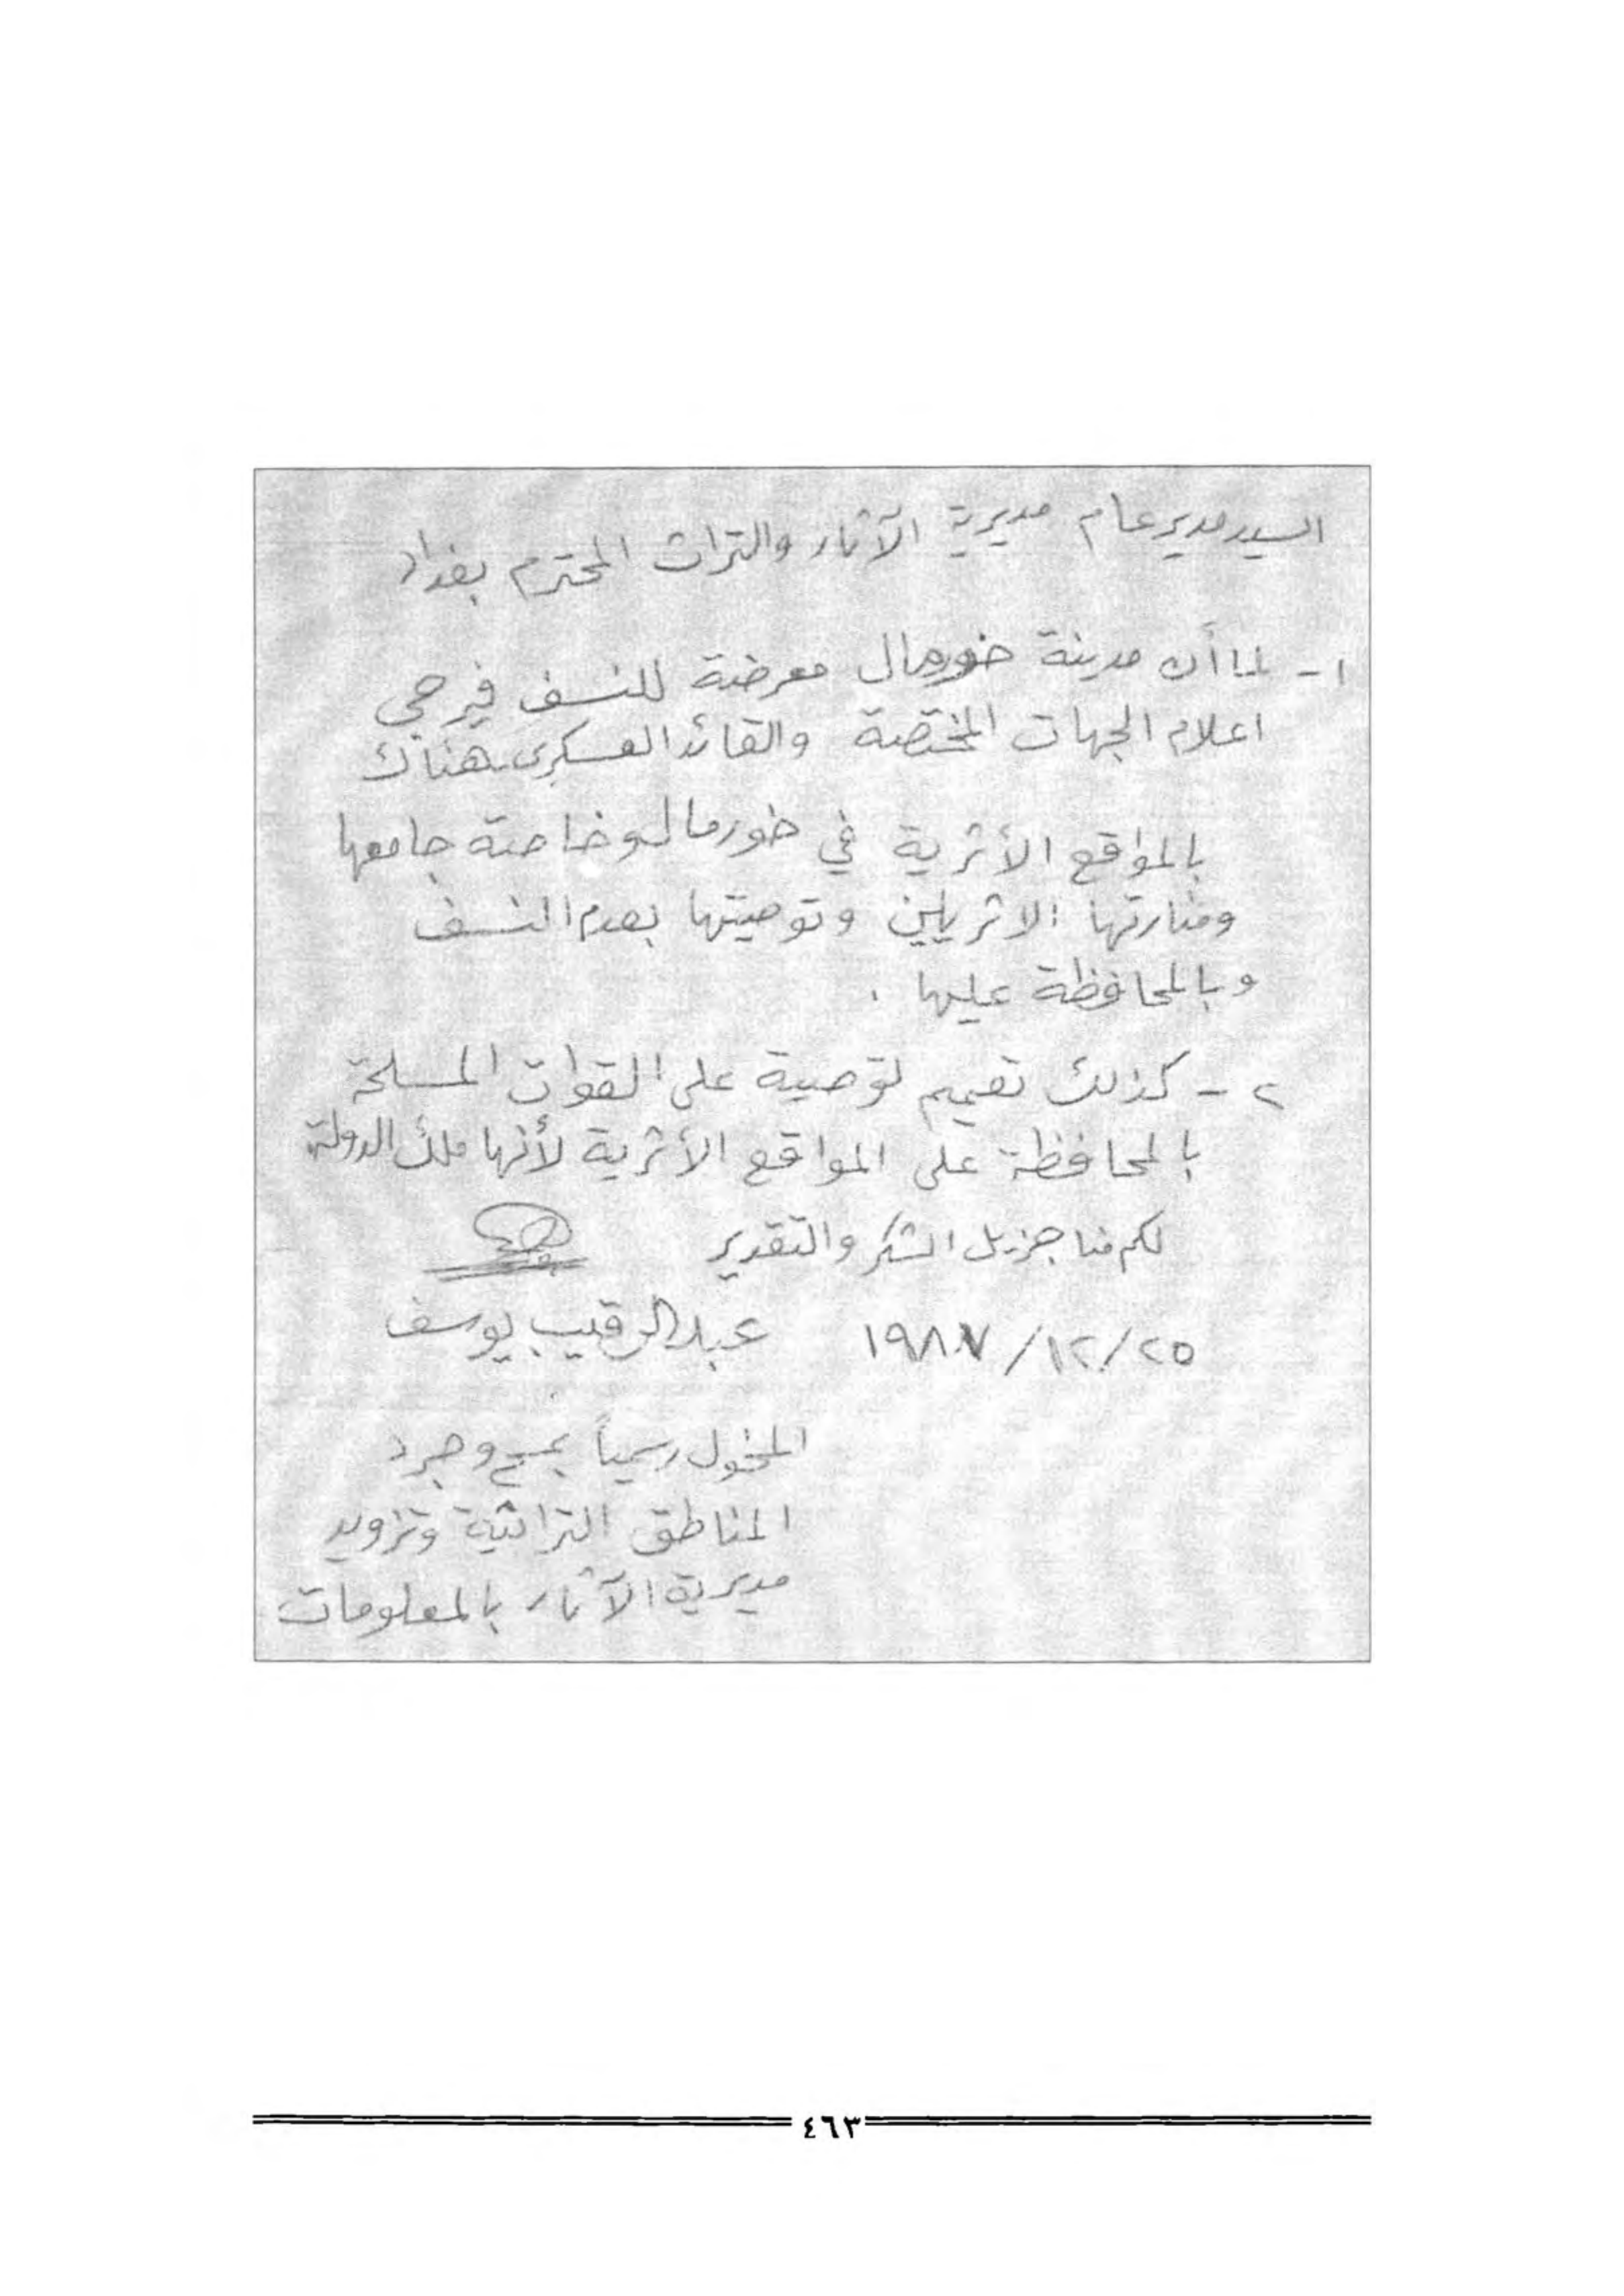 السيد مدير عام مديرية الآثار والتراث المحترم بغداد
١- لما أن مدينة خورمال معرضة للنسف فيرجى
اعلام الجهات المختصة والقائد العسكرى هناك
بالمواقع الأثرية في خورمال وخاصة جامعها
ومنارتها الاثريين وتوصيتها بعدم النسف
وبالمحافظة عليها .
٢- كذلك تعميم توصية على القوات المسلحة
بالمحافظة على المواقع الأثرية لأنها ملك الدولة
لكم منا جزيل الشكر والتقدير
٢٥/١٢/١٩٨٧ عبدالرقيب يوسف
المخول رسمياً بمسح وجرد
المناطق التراثية وتزويد
مديرية الآثار بالمعلومات
٤٦٣